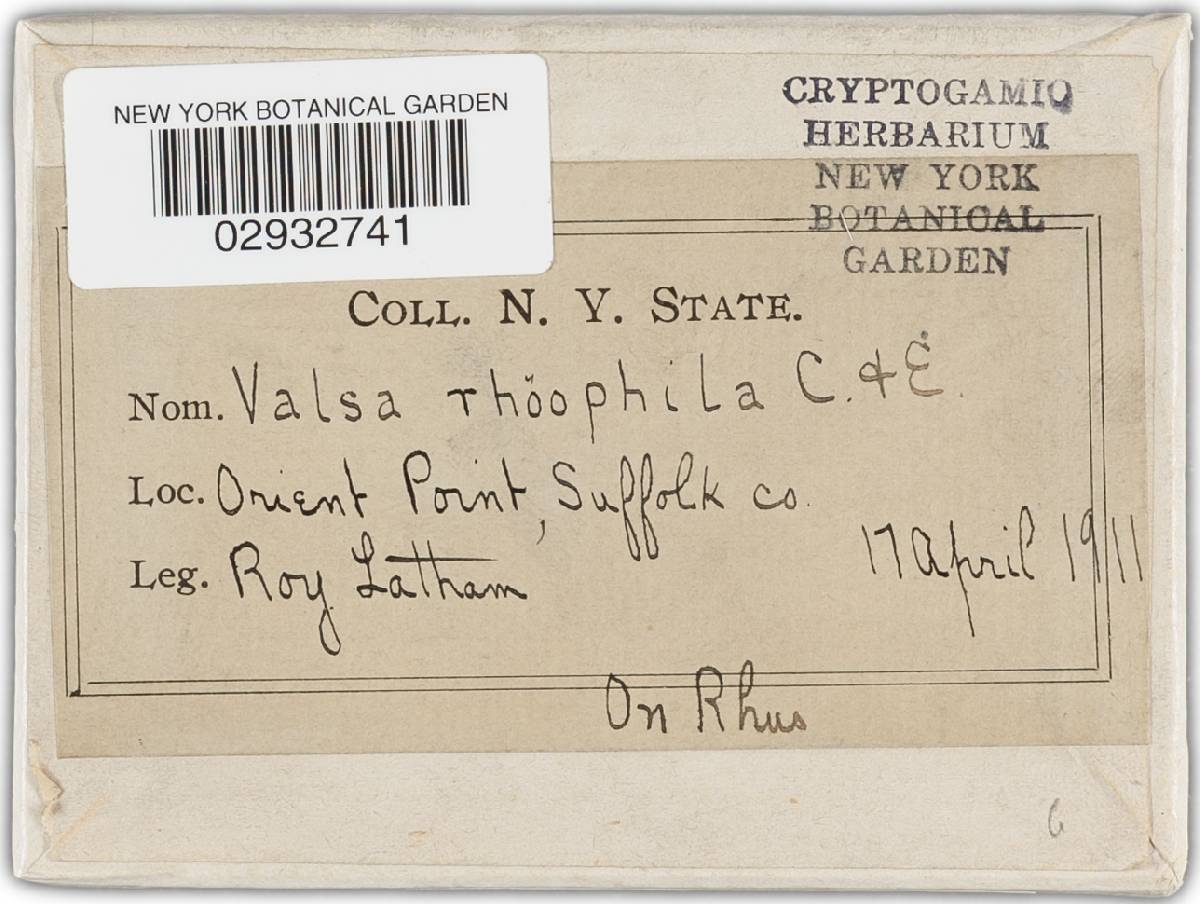 NEW YORK BOTANICAL GARDEN
02932741
CRYPTOGAMIC
HERBARIUM
NEW YORK
BOTANICAL
GARDEN
COLL. N. Y. STATE.
Nom. Valsa rhöophila C. & E.
Loc. Orient Point, Suffolk co.
Leg. Roy Latham 17 April 1911
On Rhus